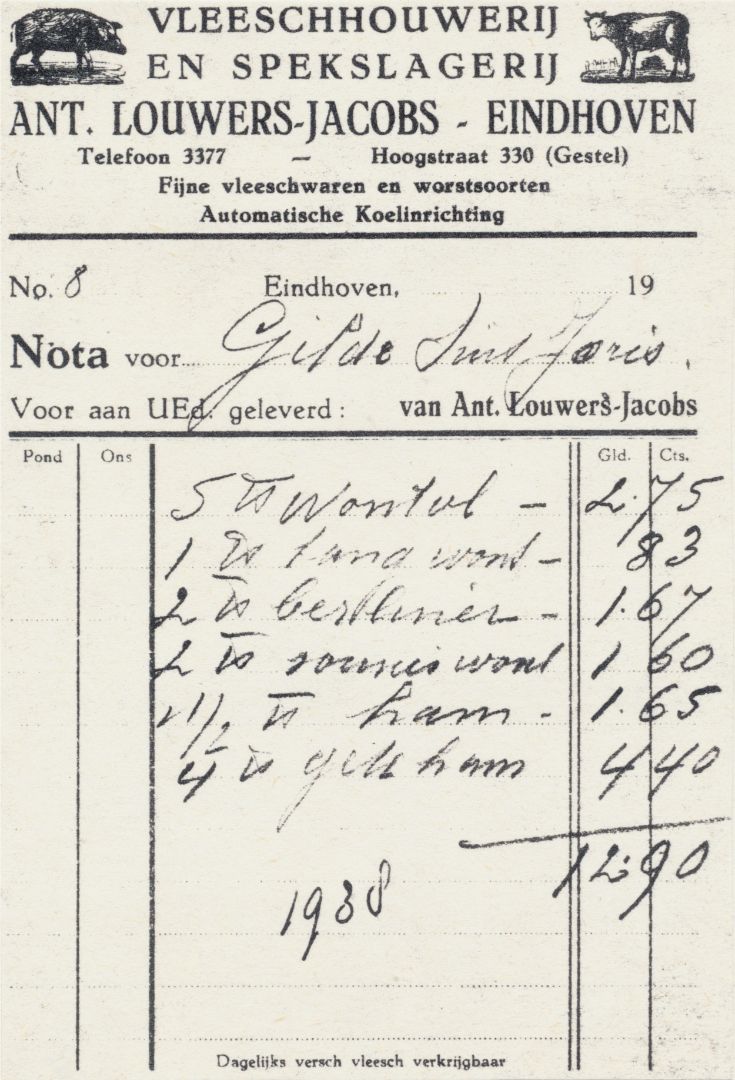 VLEESCHHOUWERIJ
EN SPEKSLAGERIJ
ANT. LOUWERS-JACOBS - EINDHOVEN
Telefoon 3377 — Hoogstraat 330 (Gestel)
Fijne vleeschwaren en worstsoorten
Automatische Koelinrichting
No. 8 Eindhoven, 19
Nota voor Gilde Sint Joris.
Voor aan UEd. geleverd: van Ant. Louwers-Jacobs
Pond Ons Gld. Cts.
5 - 2.75
1 worst - 83
2 berliner - 1.67
2 worst 1 60
1 1/2 ham - 1.65
4 ham 4 40
12.90
1938
Dagelijks versch vleesch verkrijgbaar